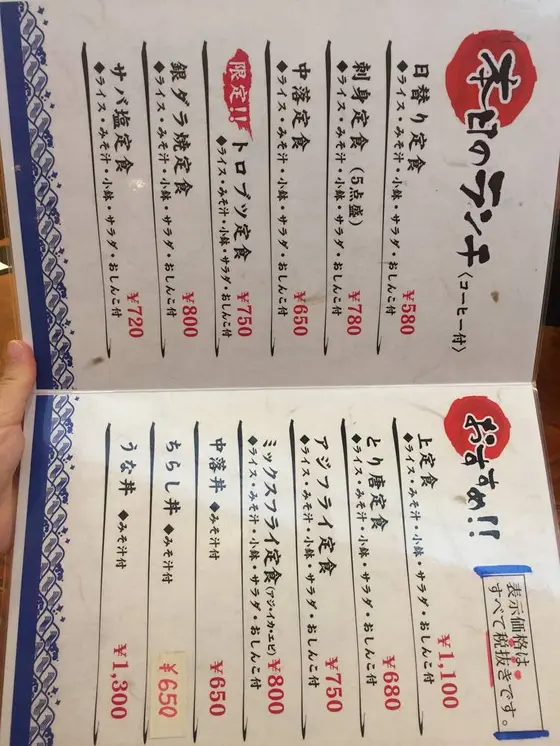 本日のランチ〈コーヒー付〉
日替り定食 ¥580
◆ライス・みそ汁・小鉢・サラダ・おしんこ付
刺身定食(5点盛) ¥780
◆ライス・みそ汁・小鉢・サラダ・おしんこ付
中落定食 ¥650
◆ライス・みそ汁・小鉢・サラダ・おしんこ付
限定!! トロブツ定食 ¥750
◆ライス・みそ汁・小鉢・サラダ・おしんこ付
銀ダラ焼定食 ¥800
◆ライス・みそ汁・小鉢・サラダ・おしんこ付
サバ塩定食 ¥720
◆ライス・みそ汁・小鉢・サラダ・おしんこ付
おすすめ!!
表示価格は
すべて税抜きです。
上定食 ¥1,100
◆ライス・みそ汁・小鉢・サラダ・おしんこ付
とり唐定食 ¥680
◆ライス・みそ汁・小鉢・サラダ・おしんこ付
アジフライ定食 ¥750
◆ライス・みそ汁・小鉢・サラダ・おしんこ付
ミックスフライ定食(アジ・イカ・エビ) ¥800
◆ライス・みそ汁・小鉢・サラダ・おしんこ付
中落丼 ◆みそ汁付 ¥650
ちらし丼 ◆みそ汁付 ¥650
うな丼 ◆みそ汁付 ¥1,300